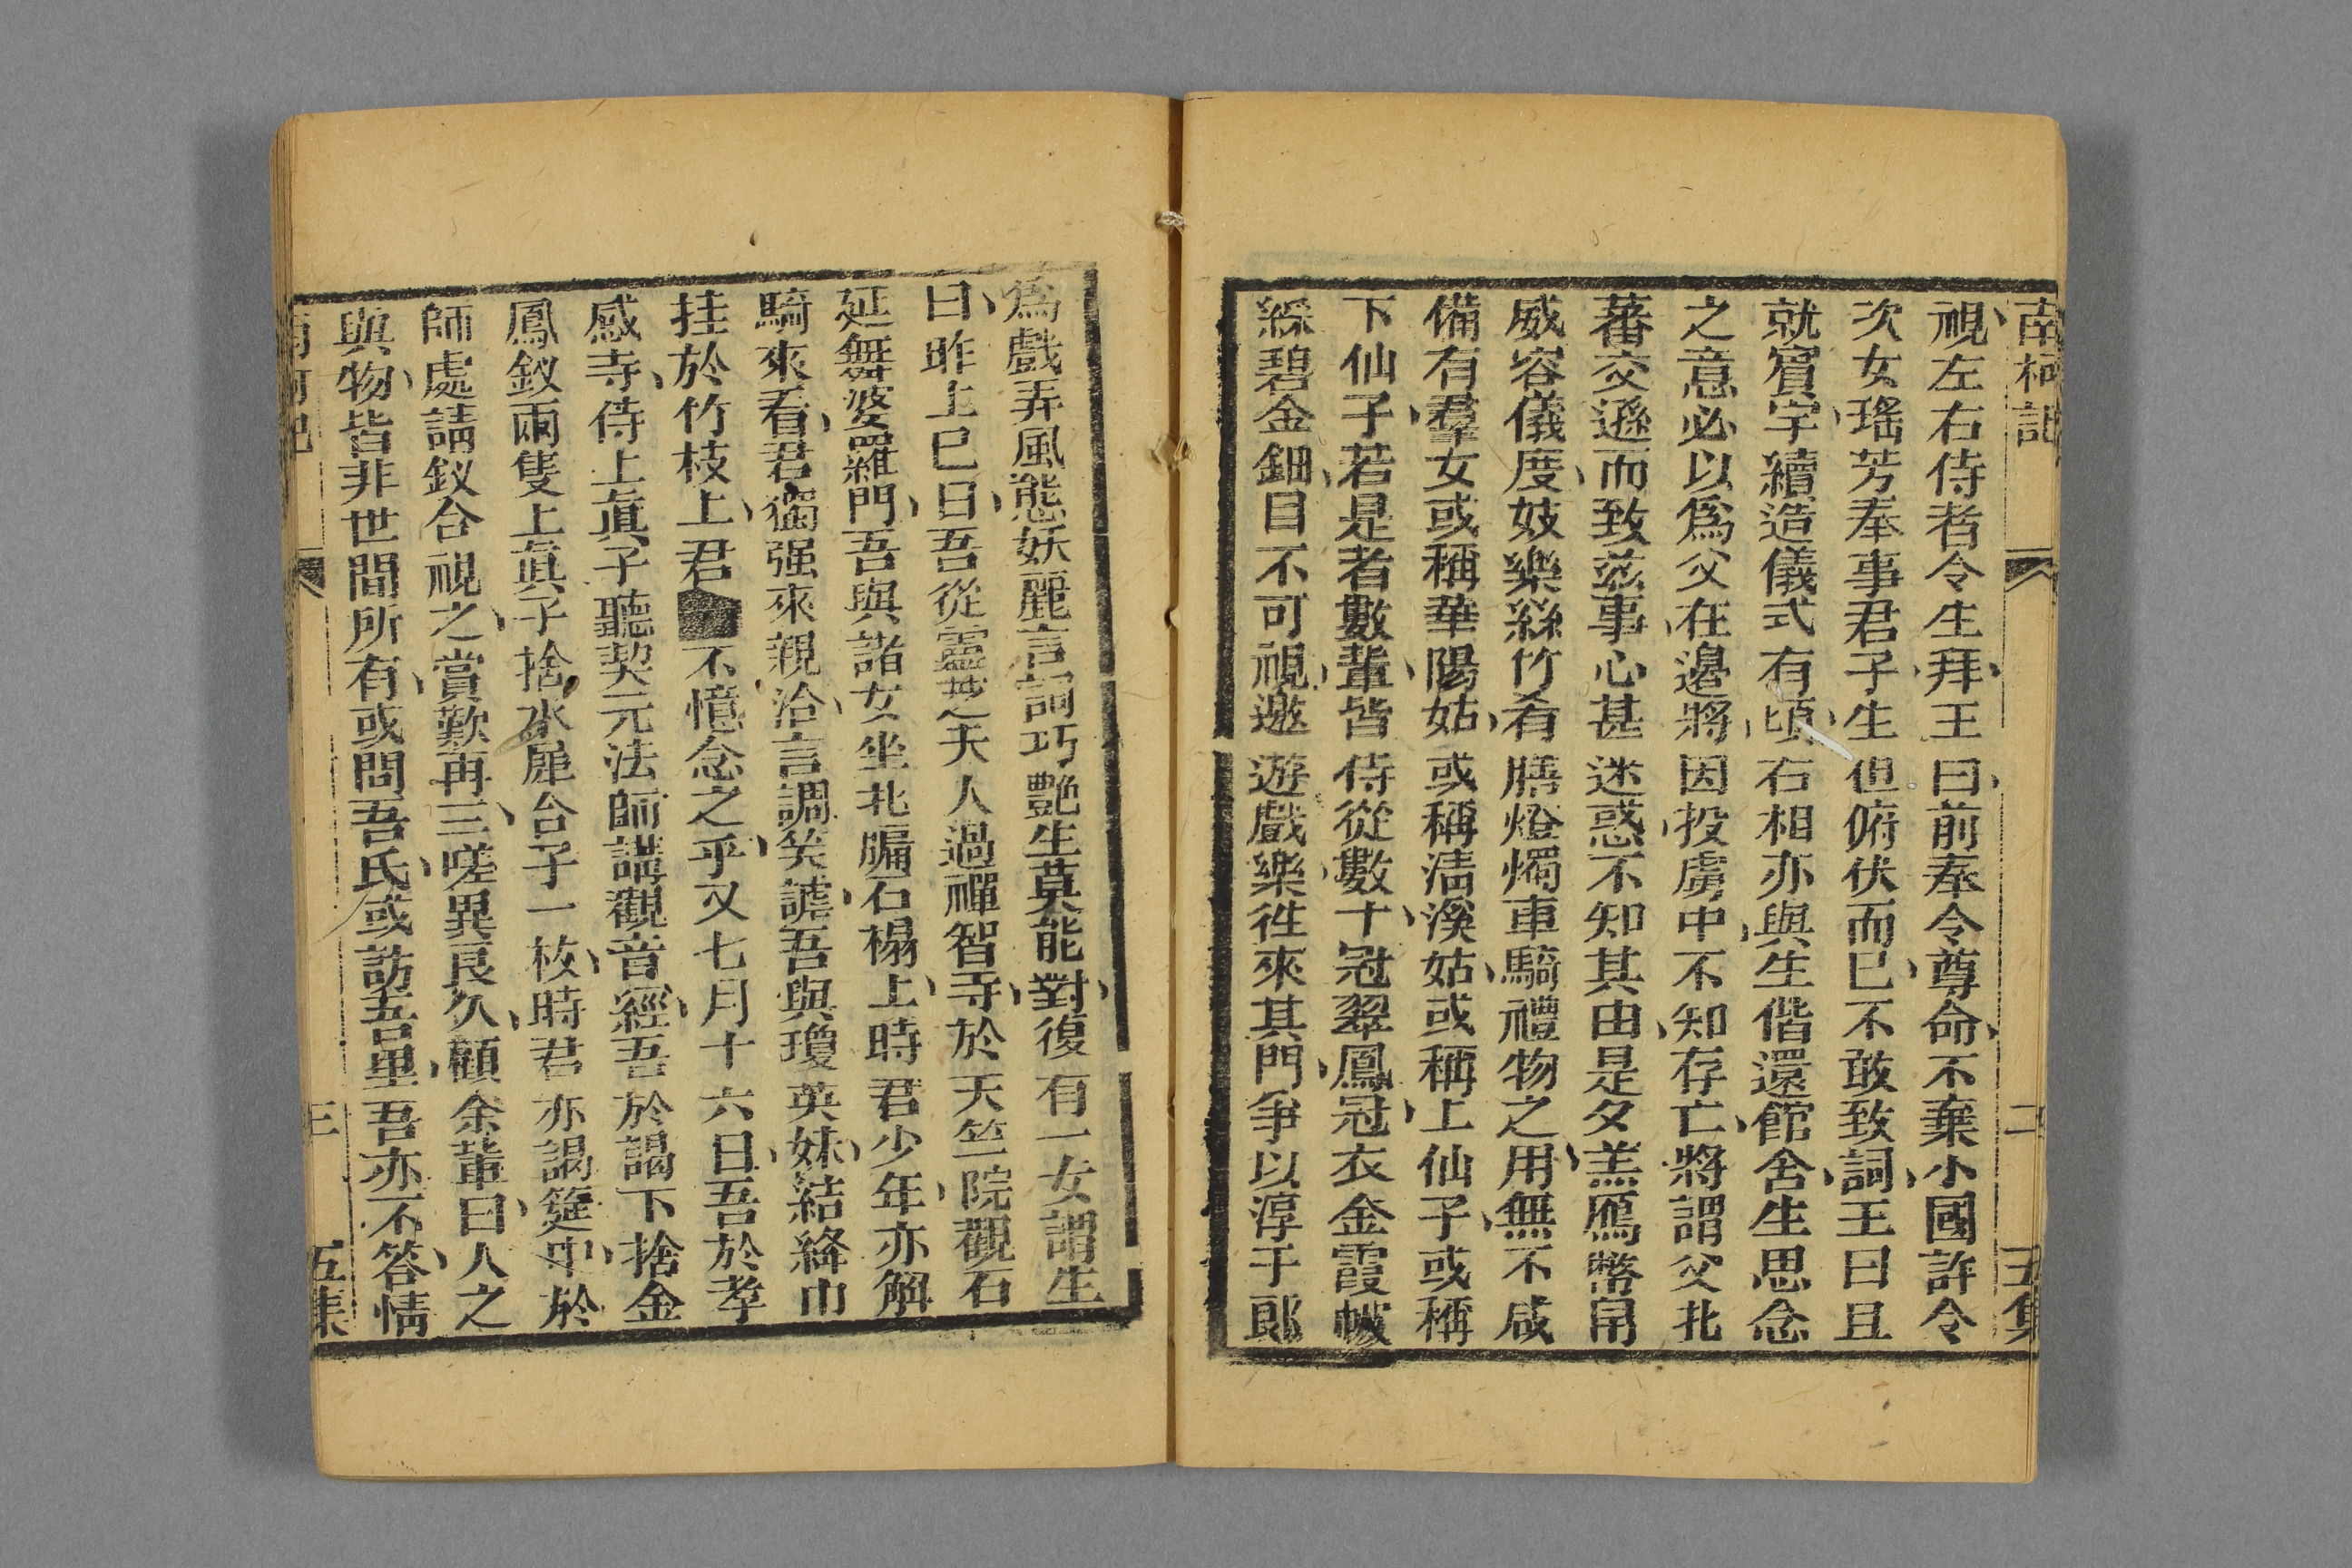 南柯記 二 五集
視左右侍者令生拜王曰前奉令尊命不棄小國許令
次女瑤芳奉事君子生但俯伏而已不敢致詞王曰且
就賓宇續造儀式有頃右相亦與生偕還館舍生思念
之意必以爲父在邊將因投虜中不知存亡將謂父北
蕃交遜而致茲事心甚迷惑不知其由是夕羔鴈幣帛
威容儀度妓樂絲竹肴膳燈燭車騎禮物之用無不咸
備有羣女或稱華陽姑或稱淸溪姑或稱上仙子或稱
下仙子若是者數輩皆侍從數十冠翠鳳冠衣金霞帔
綵碧金鈿目不可視遨遊戲樂徃來其門爭以淳于郎
爲戲弄風態妖麗言詞巧艷生莫能對復有一女謂生
曰昨上巳日吾從靈芝夫人過禪智寺於天竺院觀石
延舞婆羅門吾與諸女坐北牖石榻上時君少年亦解
騎來看君獨强來親洽言調笑謔吾與瓊英妹結絳巾
挂於竹枝上君不憶念之乎又七月十六日吾於孝
感寺侍上眞子聽契元法師講觀音經吾於講下捨金
鳳釵兩隻上眞子捨水犀合子一枚時君亦講筵中於
師處請釵合視之賞歎再三嗟異良久顧余輩曰人之
與物皆非世間所有或問吾氏或訪吾里吾亦不答情
南柯記 三 五集